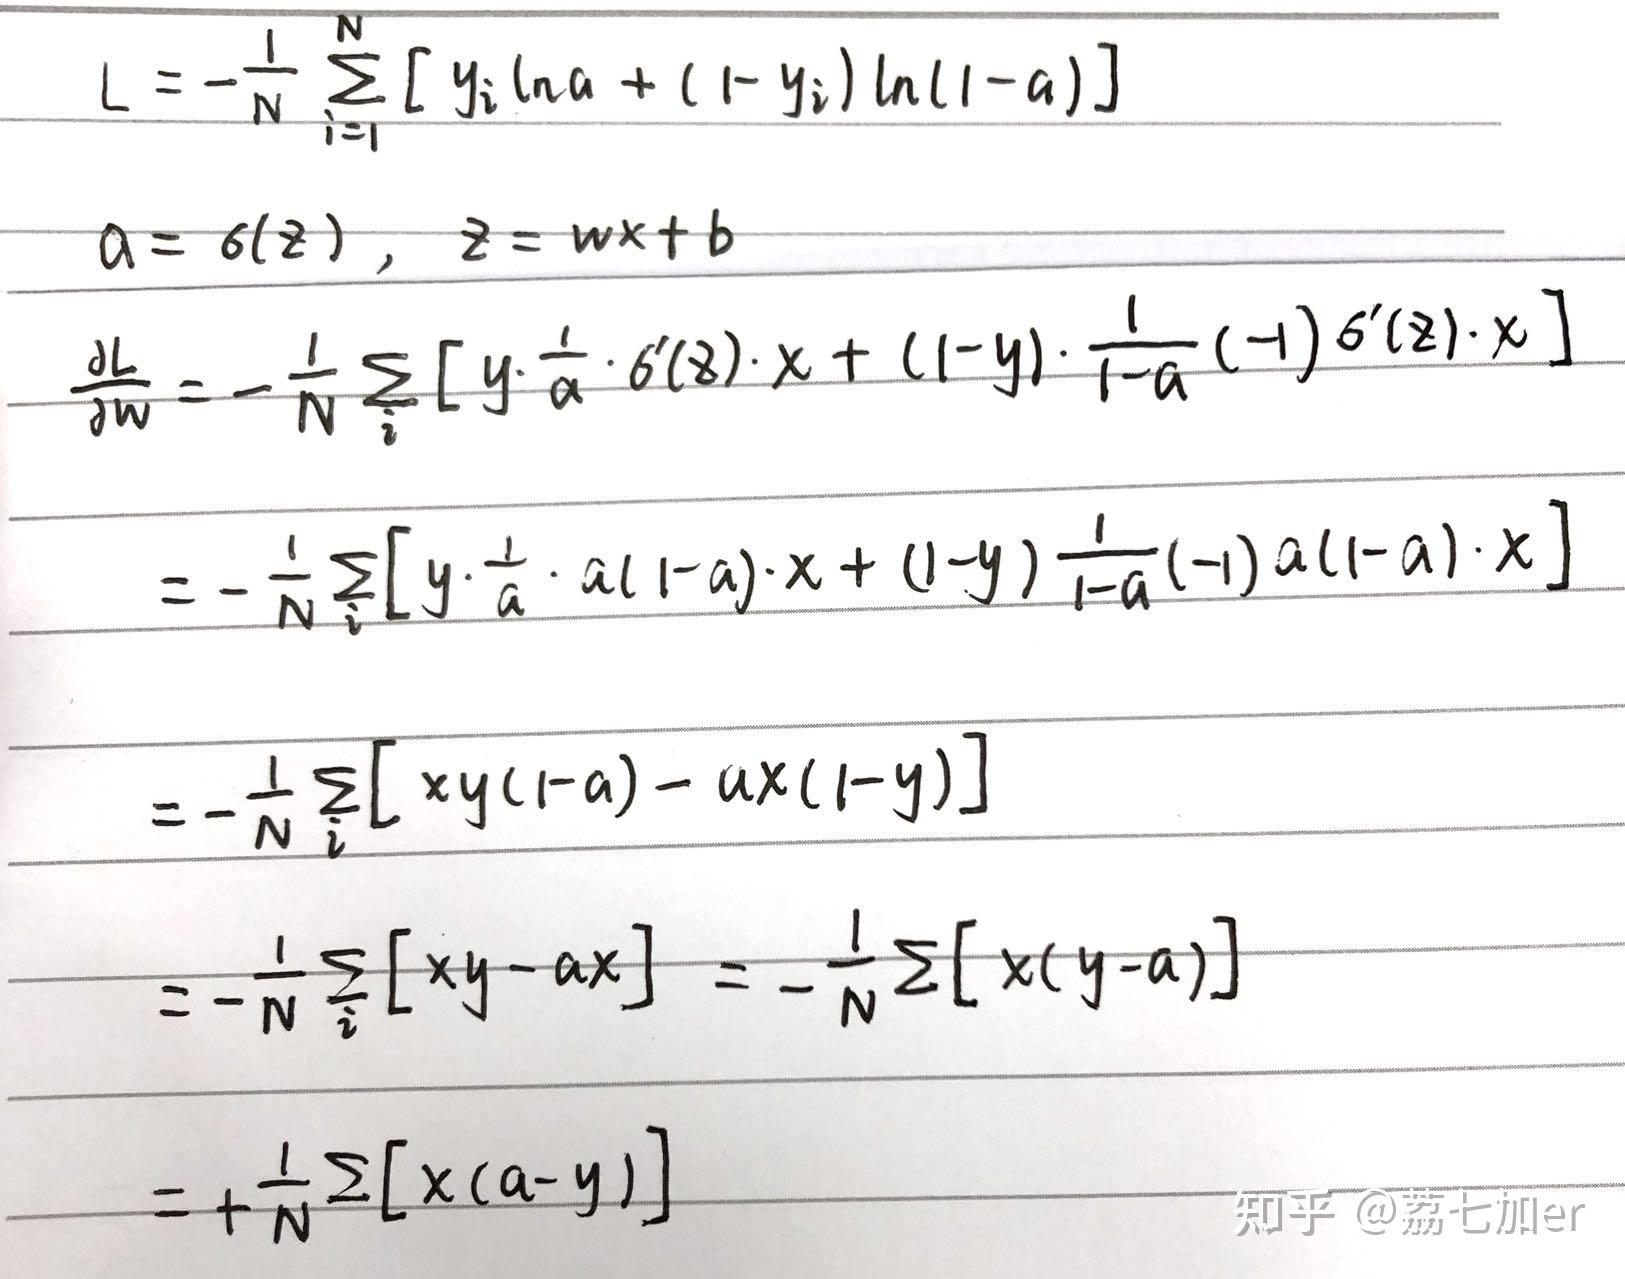 L = -\frac{1}{N} \sum_{i=1}^{N} [ y_i ln a + (1 - y_i) ln(1 - a) ]
a = σ(z) , z = wx + b
\frac{∂L}{∂w} = -\frac{1}{N} \sum_{i} [ y · \frac{1}{a} · σ'(z) · x + (1 - y) · \frac{1}{1-a} (-1) σ'(z) · x ]
= -\frac{1}{N} \sum_{i} [ y · \frac{1}{a} · a(1 - a) · x + (1 - y) \frac{1}{1-a} (-1) a(1 - a) · x ]
= -\frac{1}{N} \sum_{i} [ xy(1 - a) - ax(1 - y) ]
= -\frac{1}{N} \sum_{i} [ xy - ax ] = -\frac{1}{N} \sum [ x(y - a) ]
= +\frac{1}{N} \sum [ x(a - y) ]
知乎 @荔七加er